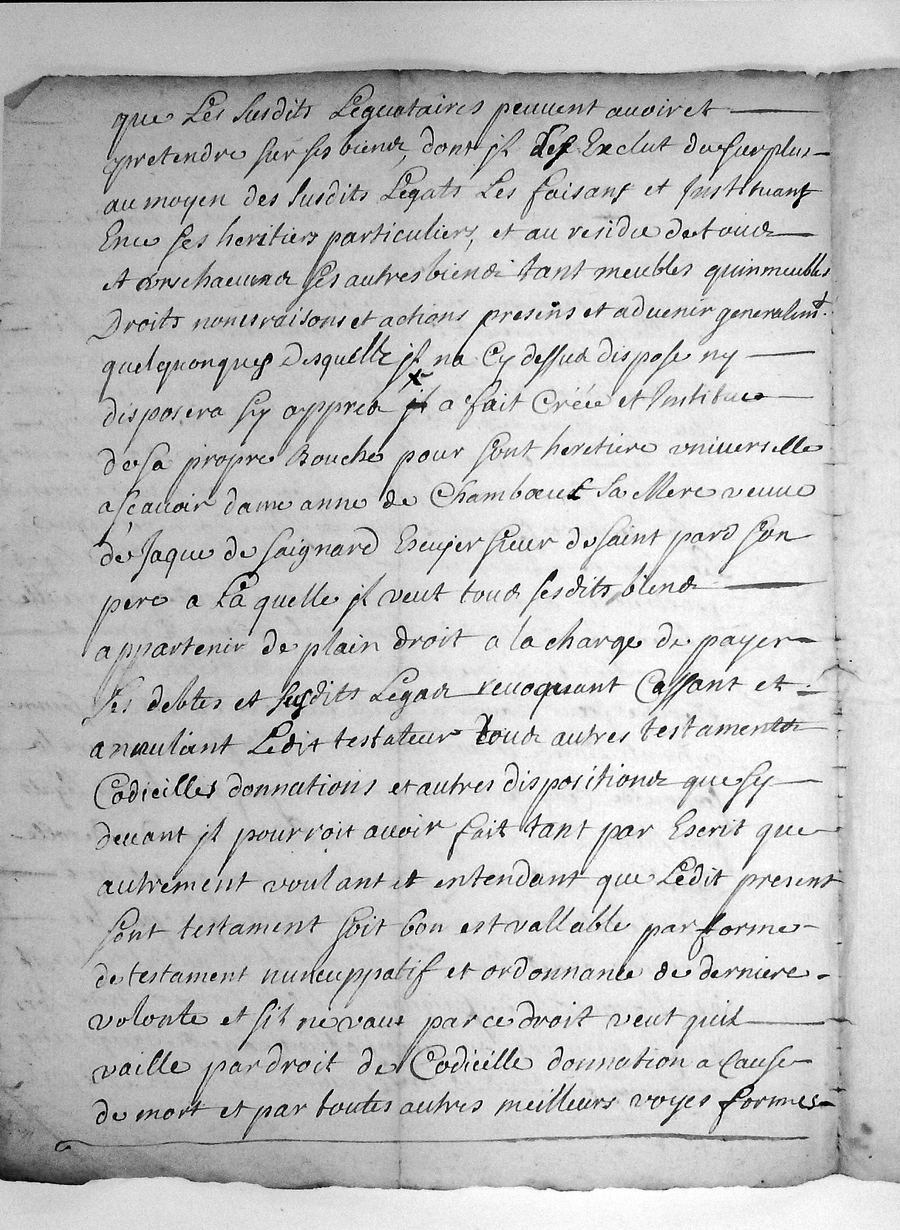 que Les susdits Leguataires peuvent avoir et
pretendre sur ses biens, dont jl les Exclut du surplus
au moyen des susdits Legats Les faisant et Instituant
En ce ses heritiers particuliers, et au residu de tous
et chacuns ses autres biens tant meubles quinmeubles
Droits noms raisons et actions presens et advenir generalemt.
quelquonques Desquelle jl na Cy dessus dispose ny
disposera sy apprea jl a fait Créée et Institue
de sa propre Bouche pour sont heretiere universelle
a scavoir dame anne de Chambœuf sa Mere veuve
de Jaque de Saignard Escuyer sieur de saint pard son
pere a La quelle jl veut tous sesdits biens
appartenir de plain droit a la charge de payer
ses debtes et susdits Legats revoquant Cassant et
anoulant Ledit testateur tous autres testaments
Codicilles donnations et autres dispositions que sy
devant jl pourroit avoir fait tant par Escrit que
autrement voulant et entendant que Ledit present
sont testament soit bon est vallable par forme
de testament nuncuppatif et ordonnance de derniere
volonte et sil ne vaut par ce droit veut quil
vaille par droit de Codicille donnation a Cause
de mort et par toutes autres meilleurs voyes formes